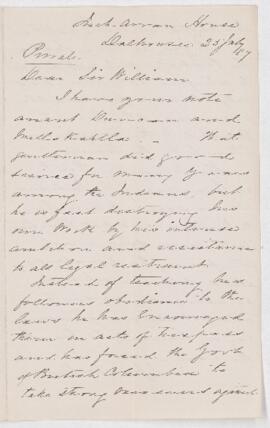 Inch Arran House
Dalhousie 25 July
Private
Dear Sir William
I have your note
anent Duncan and
Metlakatla. That
gentleman did good
service for many years
among the Indians, but
he is fast destroying his
own work by his intense
ambition and resistance
to all legal restraint.
Instead of teaching his
followers obedience to the
laws he has encouraged
them in acts of trespass
and has forced the Govt
of British Columbia to
take strong measures against